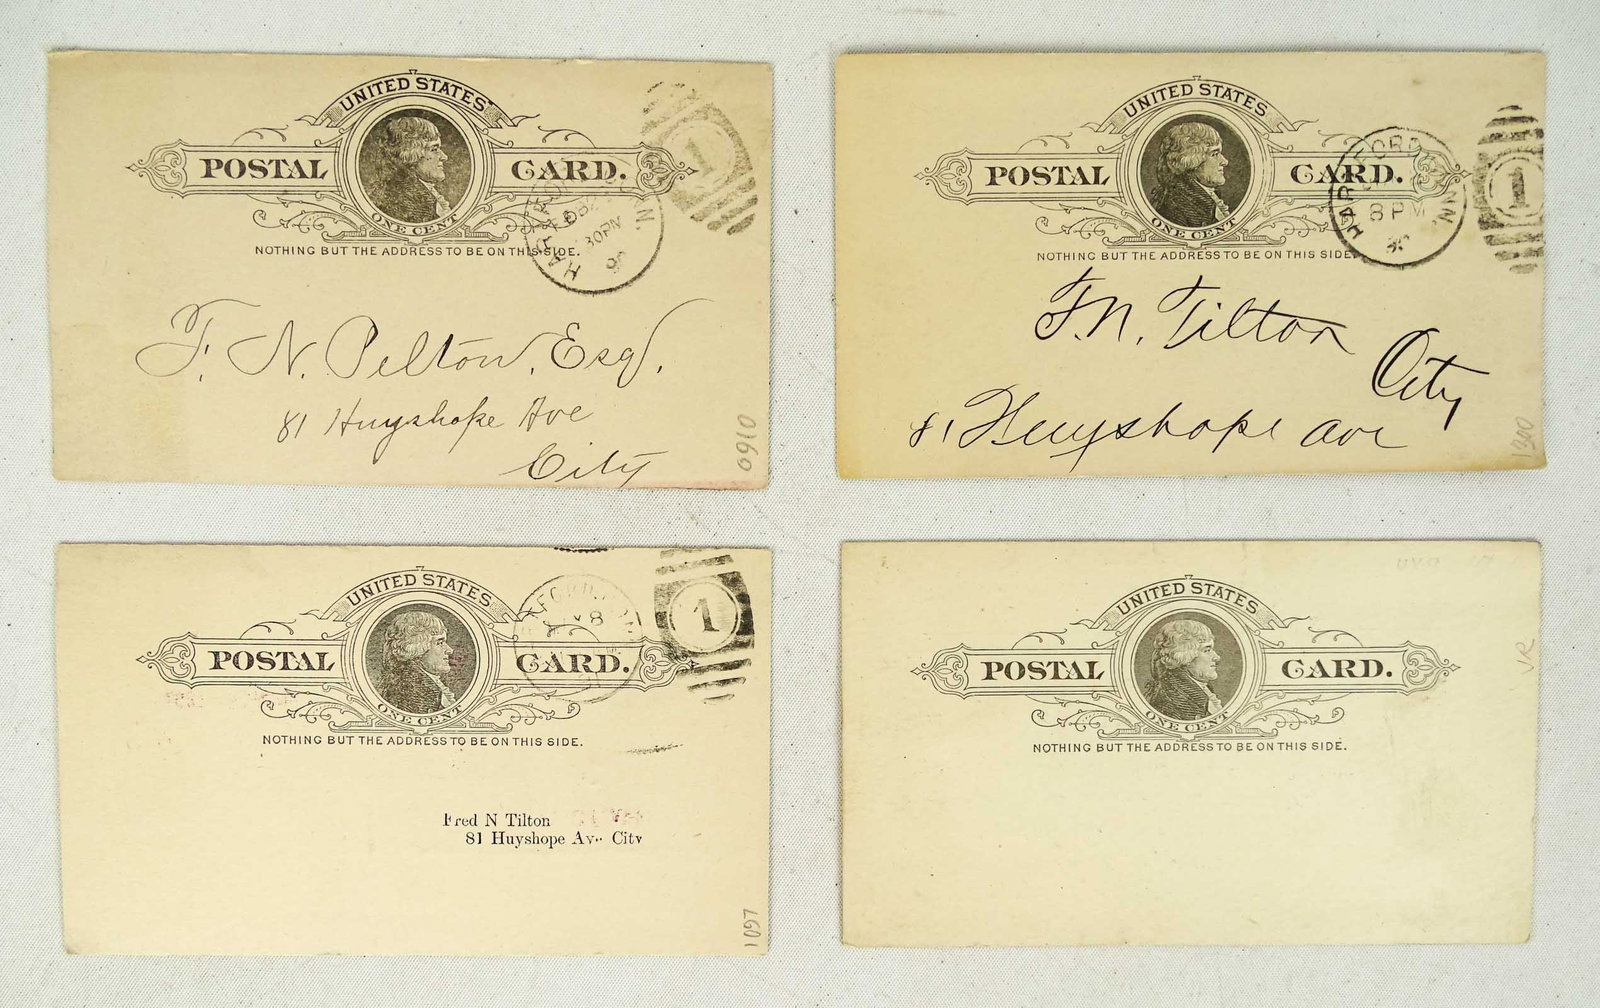 UNITED STATES
POSTAL CARD.
ONE CENT
NOTHING BUT THE ADDRESS TO BE ON THIS SIDE.
30 PM
90
1
F. N. Pelton, Esq.
81 Huyshope Ave
City
0910
UNITED STATES
POSTAL CARD.
ONE CENT
NOTHING BUT THE ADDRESS TO BE ON THIS SIDE.
HARTFORD CONN.
8 PM
90
1
F. N. Tilton
City
81 Huyshope Ave
1300
UNITED STATES
POSTAL CARD.
ONE CENT
NOTHING BUT THE ADDRESS TO BE ON THIS SIDE.
8
1
Fred N Tilton
81 Huyshope Av. City
1097
UNITED STATES
POSTAL CARD.
ONE CENT
NOTHING BUT THE ADDRESS TO BE ON THIS SIDE.
VR